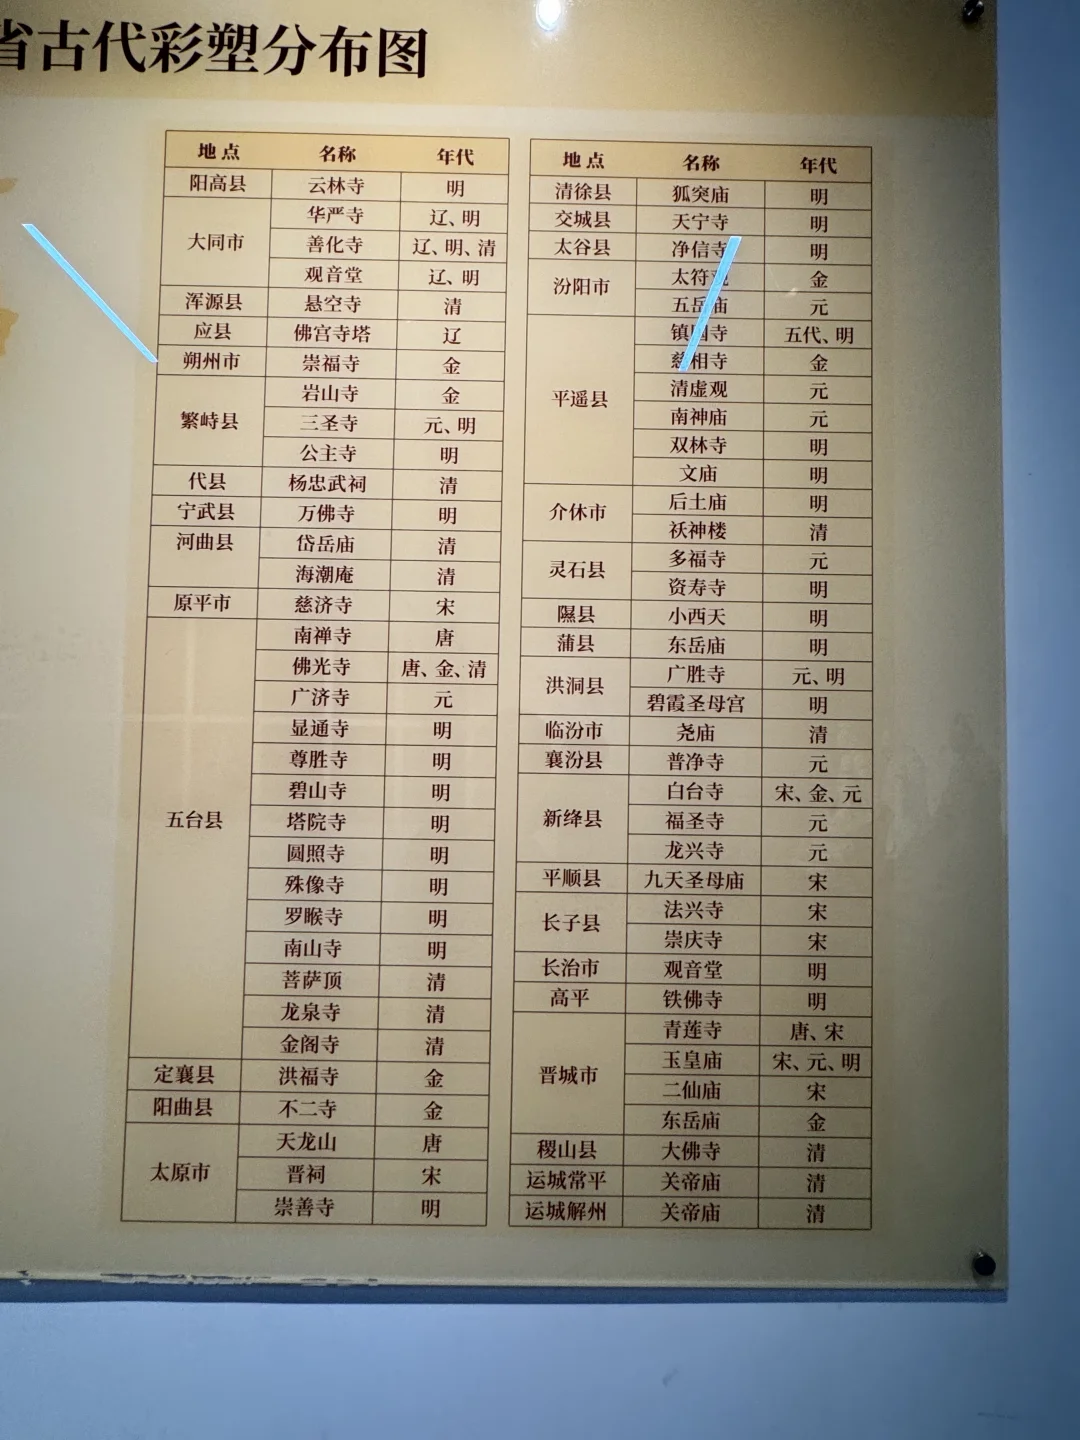 省古代彩塑分布图
地点 名称 年代
阳高县 云林寺 明
大同市 华严寺 辽、明
善化寺 辽、明、清
观音堂 辽、明
浑源县 悬空寺 清
应县 佛宫寺塔 辽
朔州市 崇福寺 金
繁峙县 岩山寺 金
三圣寺 元、明
公主寺 明
代县 杨忠武祠 清
宁武县 万佛寺 明
河曲县 岱岳庙 清
海潮庵 清
原平市 慈济寺 宋
五台县 南禅寺 唐
佛光寺 唐、金、清
广济寺 元
显通寺 明
尊胜寺 明
碧山寺 明
塔院寺 明
圆照寺 明
殊像寺 明
罗睺寺 明
南山寺 明
菩萨顶 清
龙泉寺 清
金阁寺 清
定襄县 洪福寺 金
阳曲县 不二寺 金
太原市 天龙山 唐
晋祠 宋
崇善寺 明
地点 名称 年代
清徐县 狐突庙 明
交城县 天宁寺 明
太谷县 净信寺 明
汾阳市 太符观 金
五岳庙 元
平遥县 镇国寺 五代、明
慈相寺 金
清虚观 元
南神庙 元
双林寺 明
文庙 明
介休市 后土庙 明
祆神楼 清
灵石县 多福寺 元
资寿寺 明
隰县 小西天 明
蒲县 东岳庙 明
洪洞县 广胜寺 元、明
碧霞圣母宫 明
临汾市 尧庙 清
襄汾县 普净寺 元
新绛县 白台寺 宋、金、元
福圣寺 元
龙兴寺 元
平顺县 九天圣母庙 宋
长子县 法兴寺 宋
崇庆寺 宋
长治市 观音堂 明
高平 铁佛寺 明
晋城市 青莲寺 唐、宋
玉皇庙 宋、元、明
二仙庙 宋
东岳庙 金
稷山县 大佛寺 清
运城常平 关帝庙 清
运城解州 关帝庙 清